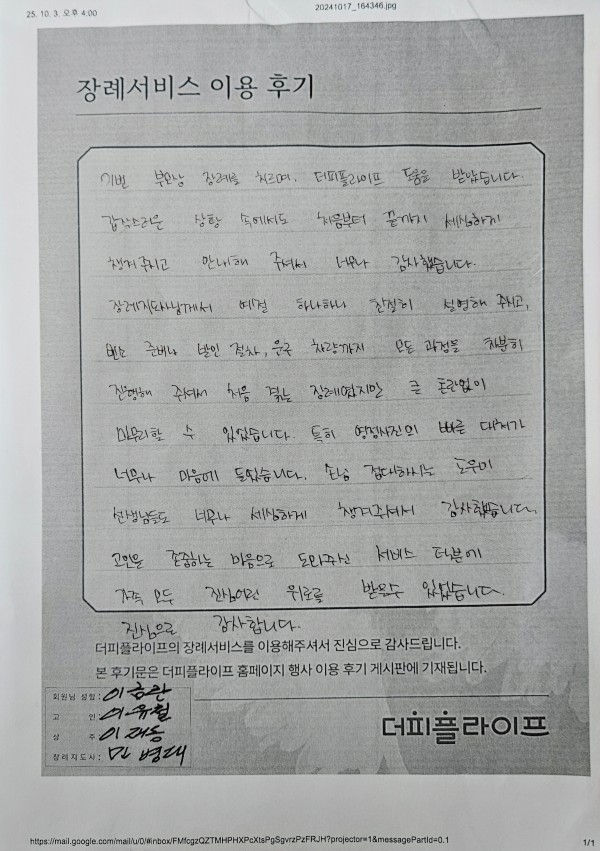 25. 10. 3. 오후 4:00
20241017_164346.jpg
장례서비스 이용 후기
이번 부친상 장례를 치르며, 더피플라이프 도움을 받았습니다.
갑작스러운 상황 속에서도 처음부터 끝까지 세심하게
챙겨주시고 안내해 주셔서 너무나 감사했습니다.
장례지도사님께서 예절 하나하나 친절히 설명해 주시고,
빈소 준비나 발인 절차, 운구 차량까지 모든 과정을 차분히
진행해 주셔서 처음 겪는 장례였지만 큰 혼란없이
마무리할 수 있었습니다. 특히 영정사진의 빠른 대처가
너무나 마음에 들었습니다. 손님 접대하시는 도우미
선생님들도 너무나 세심하게 챙겨주셔서 감사했습니다.
고인을 존중하는 마음으로 도와주신 서비스 덕분에
가족 모두 진심어린 위로를 받을수 있었습니다.
진심으로 감사합니다.
더피플라이프의 장례서비스를 이용해주셔서 진심으로 감사드립니다.
본 후기문은 더피플라이프 홈페이지 행사 이용 후기 게시판에 기재됩니다.
회원님 성함 :
고 인 :
상 주 :
장례지도사 : 민병대
더피플라이프
https://mail.google.com/mail/u/0/#inbox/FMfcgzQZTMHPHXPcXtsPgSgvrzPzFRJH?projector=1&messagePartId=0.1
1/1